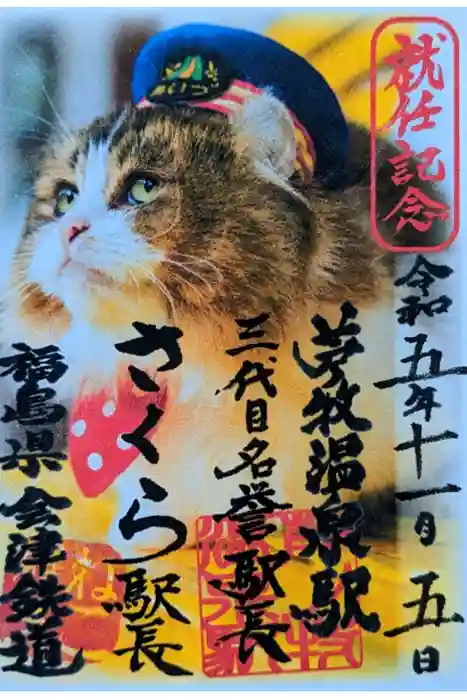 就任記念
令和五年十一月五日
芦牧温泉駅
三代目名誉駅長
さくら駅長
福島県会津鉄道